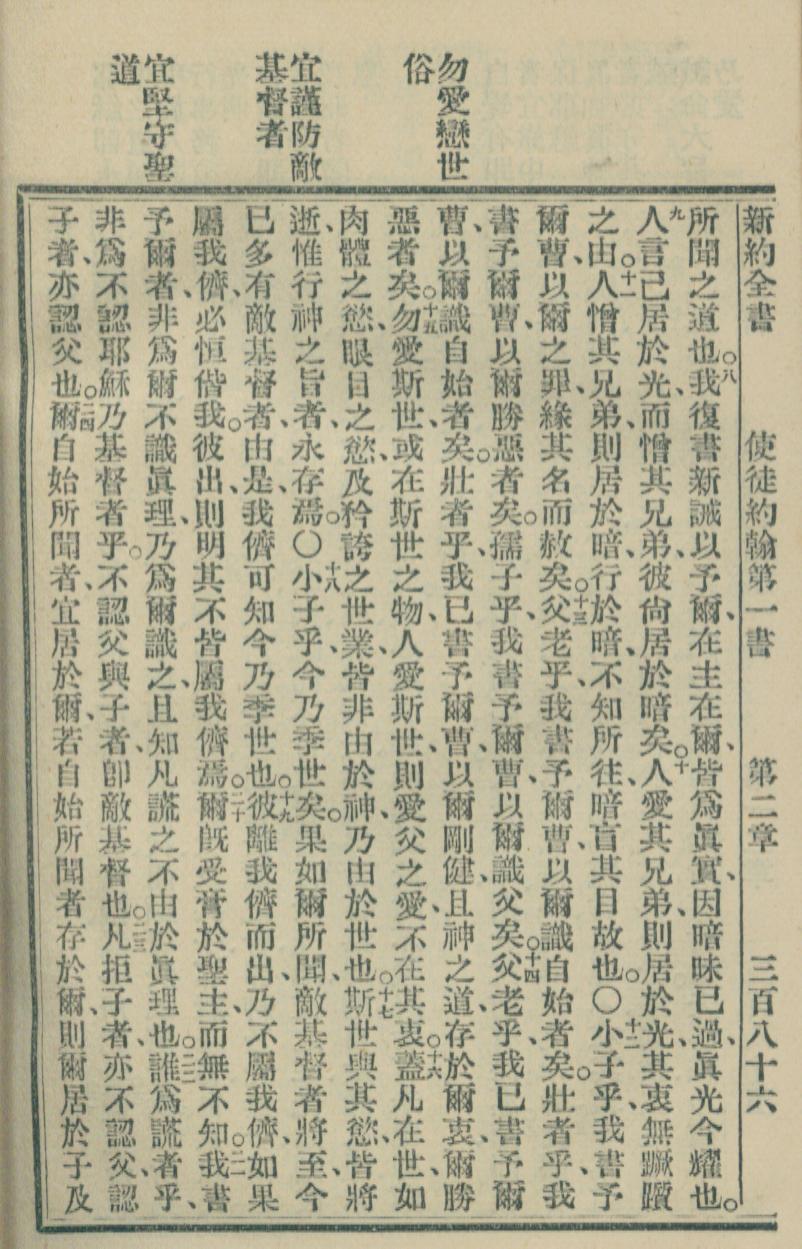 新約全書 使徒約翰第一書 第二章 三百八十六
所聞之道也。八我復書新誡以予爾、在主在爾、皆爲眞實、因暗昧已過、眞光今耀也。
九人言己居於光、而憎其兄弟、彼尙居於暗矣。十人愛其兄弟、則居於光、其衷無蹶躓
之由。十一人憎其兄弟、則居於暗、行於暗、不知所往、暗盲其目故也。〇十二小子乎、我書予
爾曹、以爾之罪、緣其名而赦矣。十三父老乎、我書予爾曹、以爾識自始者矣。壯者乎、我
書予爾曹、以爾勝惡者矣。孺子乎、我書予爾曹、以爾識父矣。十四父老乎、我已書予爾
曹、以爾識自始者矣。壯者乎、我已書予爾曹、以爾剛健、且神之道、存於爾衷、爾勝
惡者矣。十五勿愛斯世、或在斯世之物、人愛斯世、則愛父之愛、不在其衷。十六蓋凡在世、如
肉體之慾、眼目之慾、及矜誇之世業、皆非由於神、乃由於世也。十七斯世與其慾、皆將
逝、惟行神之旨者、永存焉。〇十八小子乎、今乃季世矣。果如爾所聞、敵基督者將至、今
已多有敵基督者、由是、我儕可知今乃季世也。十九彼離我儕而出、乃不屬我儕、如果
屬我儕、必恒偕我。彼出、則明其不皆屬我儕焉。二十爾旣受膏於聖主、而無不知。二一我書
予爾者、非爲爾不識眞理、乃爲爾識之、且知凡謊之不由於眞理也。二二誰爲謊者乎、
非爲不認耶穌乃基督者乎。不認父與子者、卽敵基督也。二三凡拒子者、亦不認父、認
子者、亦認父也。二四爾自始所聞者、宜居於爾、若自始所聞者存於爾、則爾居於子及
勿愛戀世
俗
宜謹防敵
基督者
宜堅守聖
道